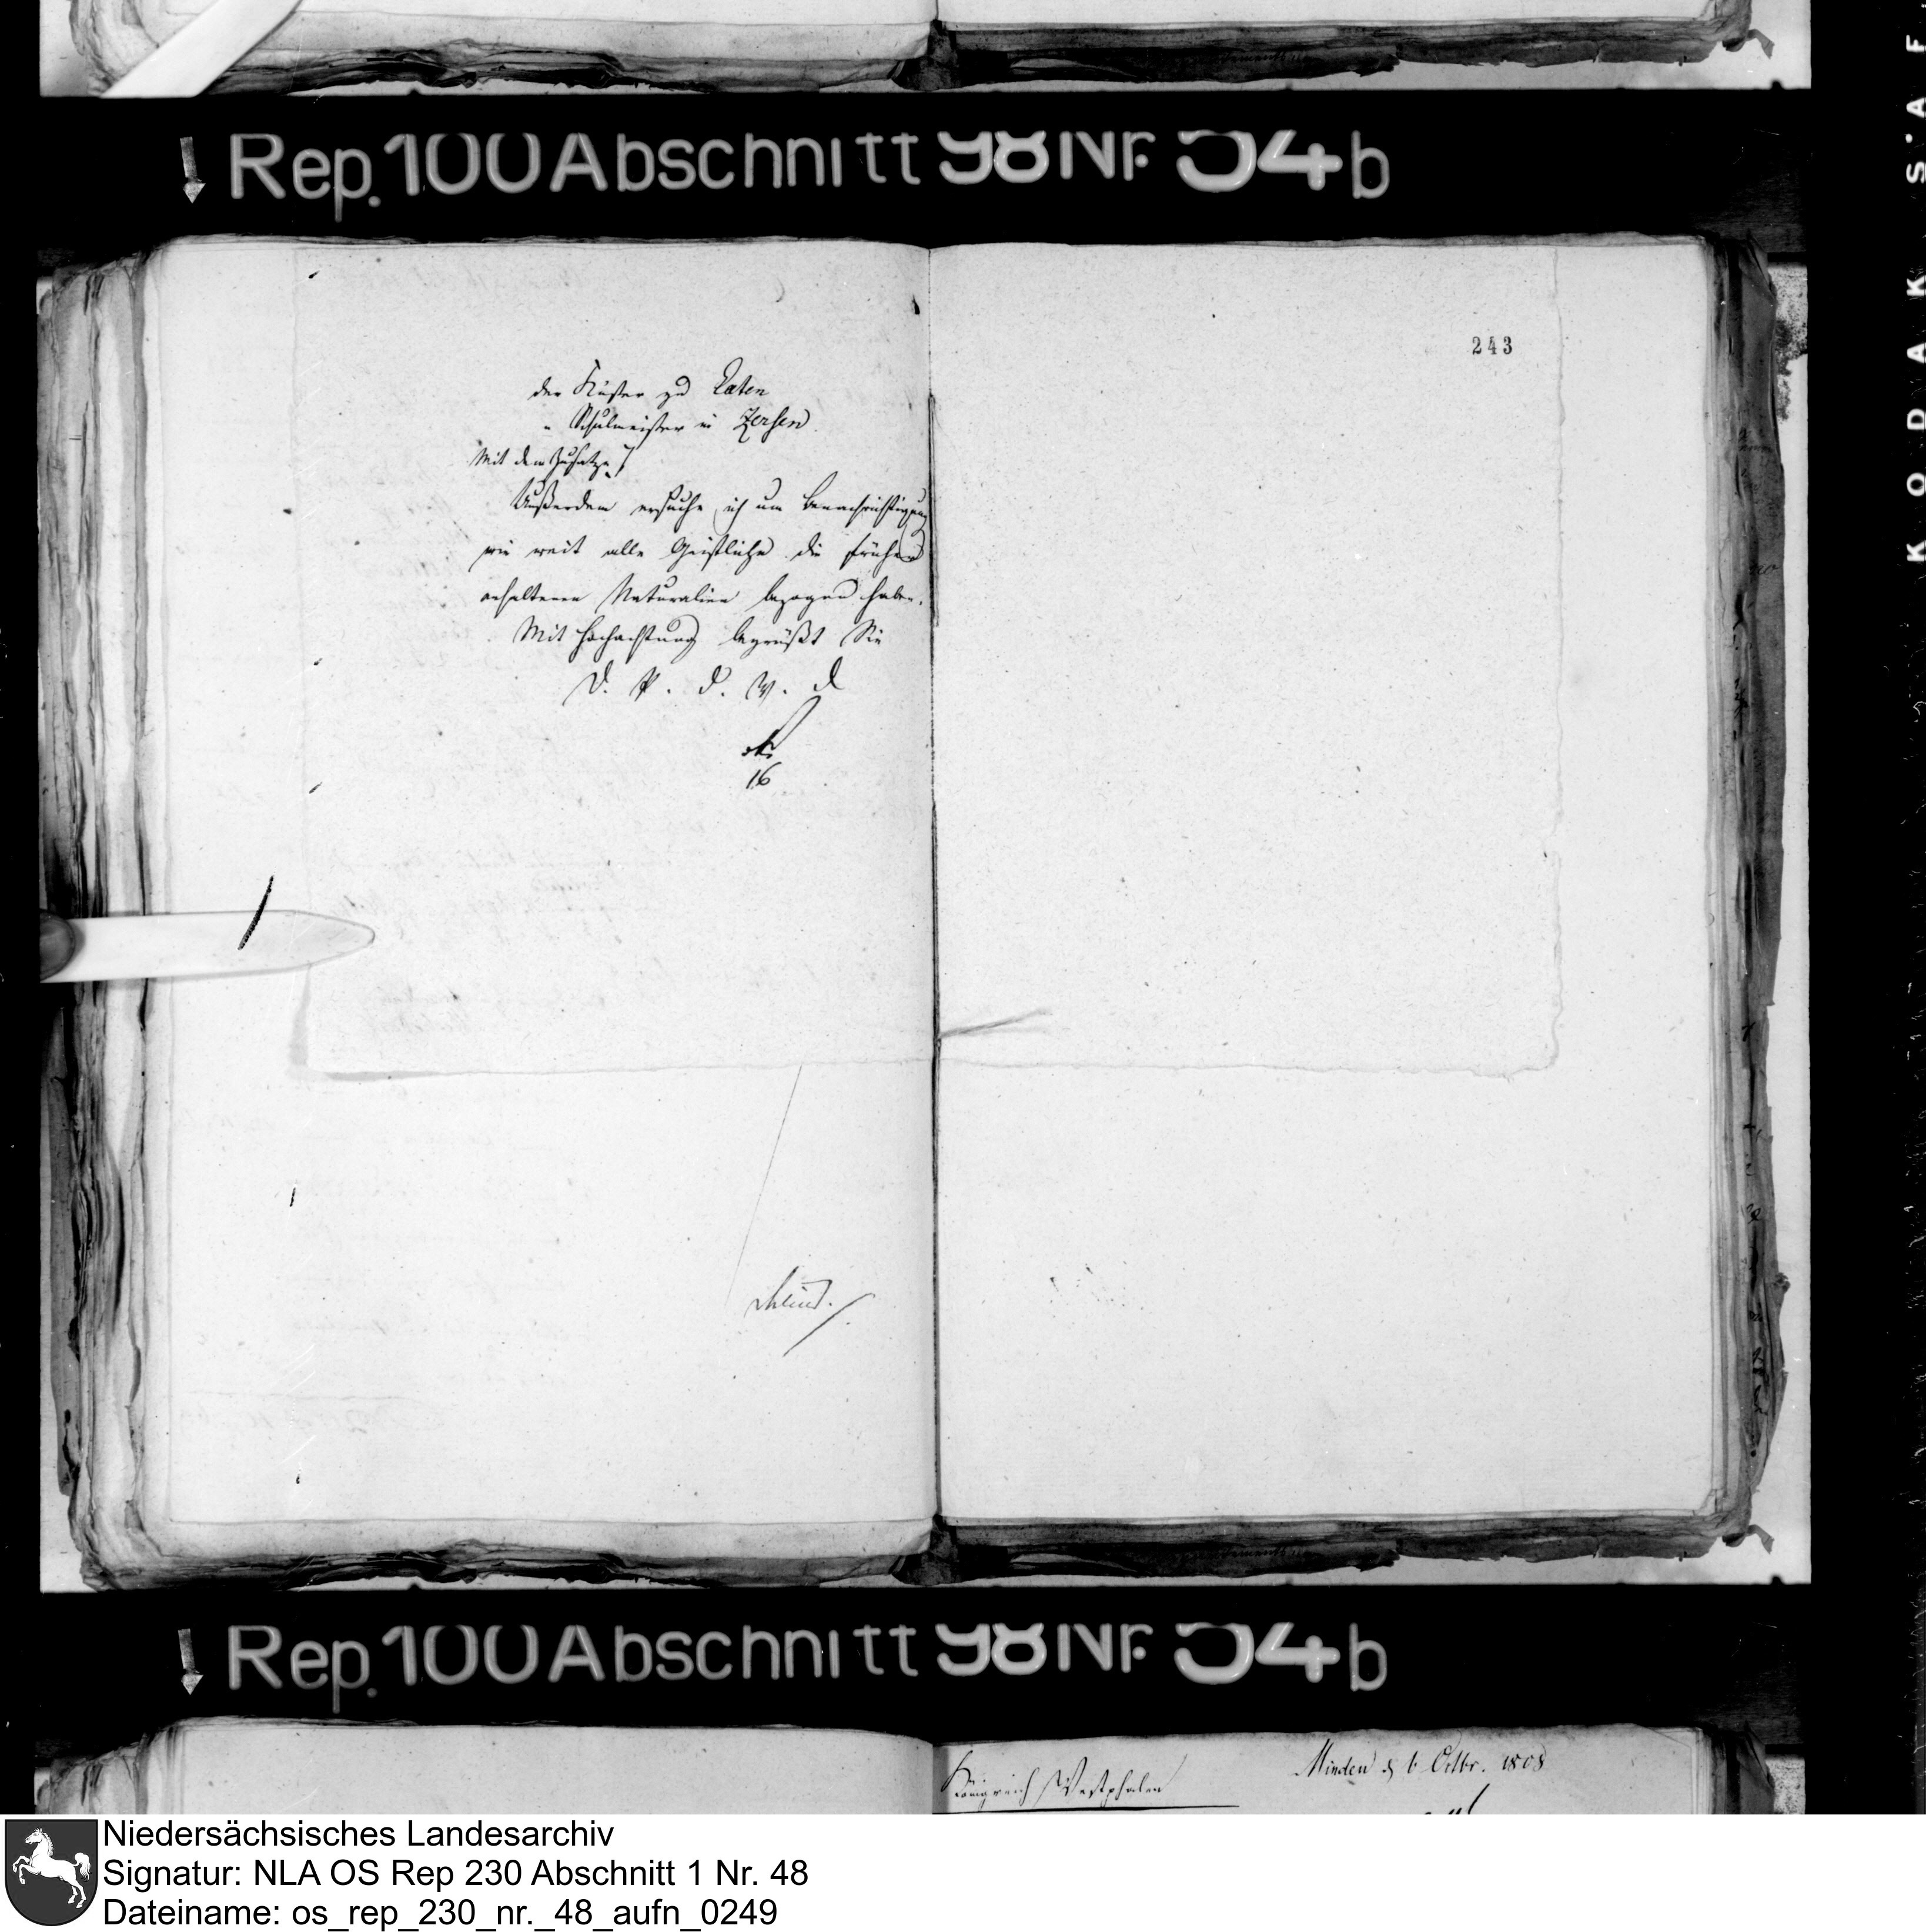 Rep. 100 Abschnitt 98 Nr. 54b
243
der Küster zu Exten
" Schulmeister in Zersen.
Mit dem Zusatze
Außerdem ersuche ich um Benachrichtigung
wie weit alle Geistliche die früher
erhaltenen Naturalien bezogen haben.
Mit Hochachtung begrüßt Sie
D. P. d. W. D
16
Rep. 100 Abschnitt 98 Nr. 54b
Königreich Westphalen
Minden d 6 Octbr. 1808
KODAK SAF
Niedersächsisches Landesarchiv
Signatur: NLA OS Rep 230 Abschnitt 1 Nr. 48
Dateiname: os_rep_230_nr._48_aufn_0249